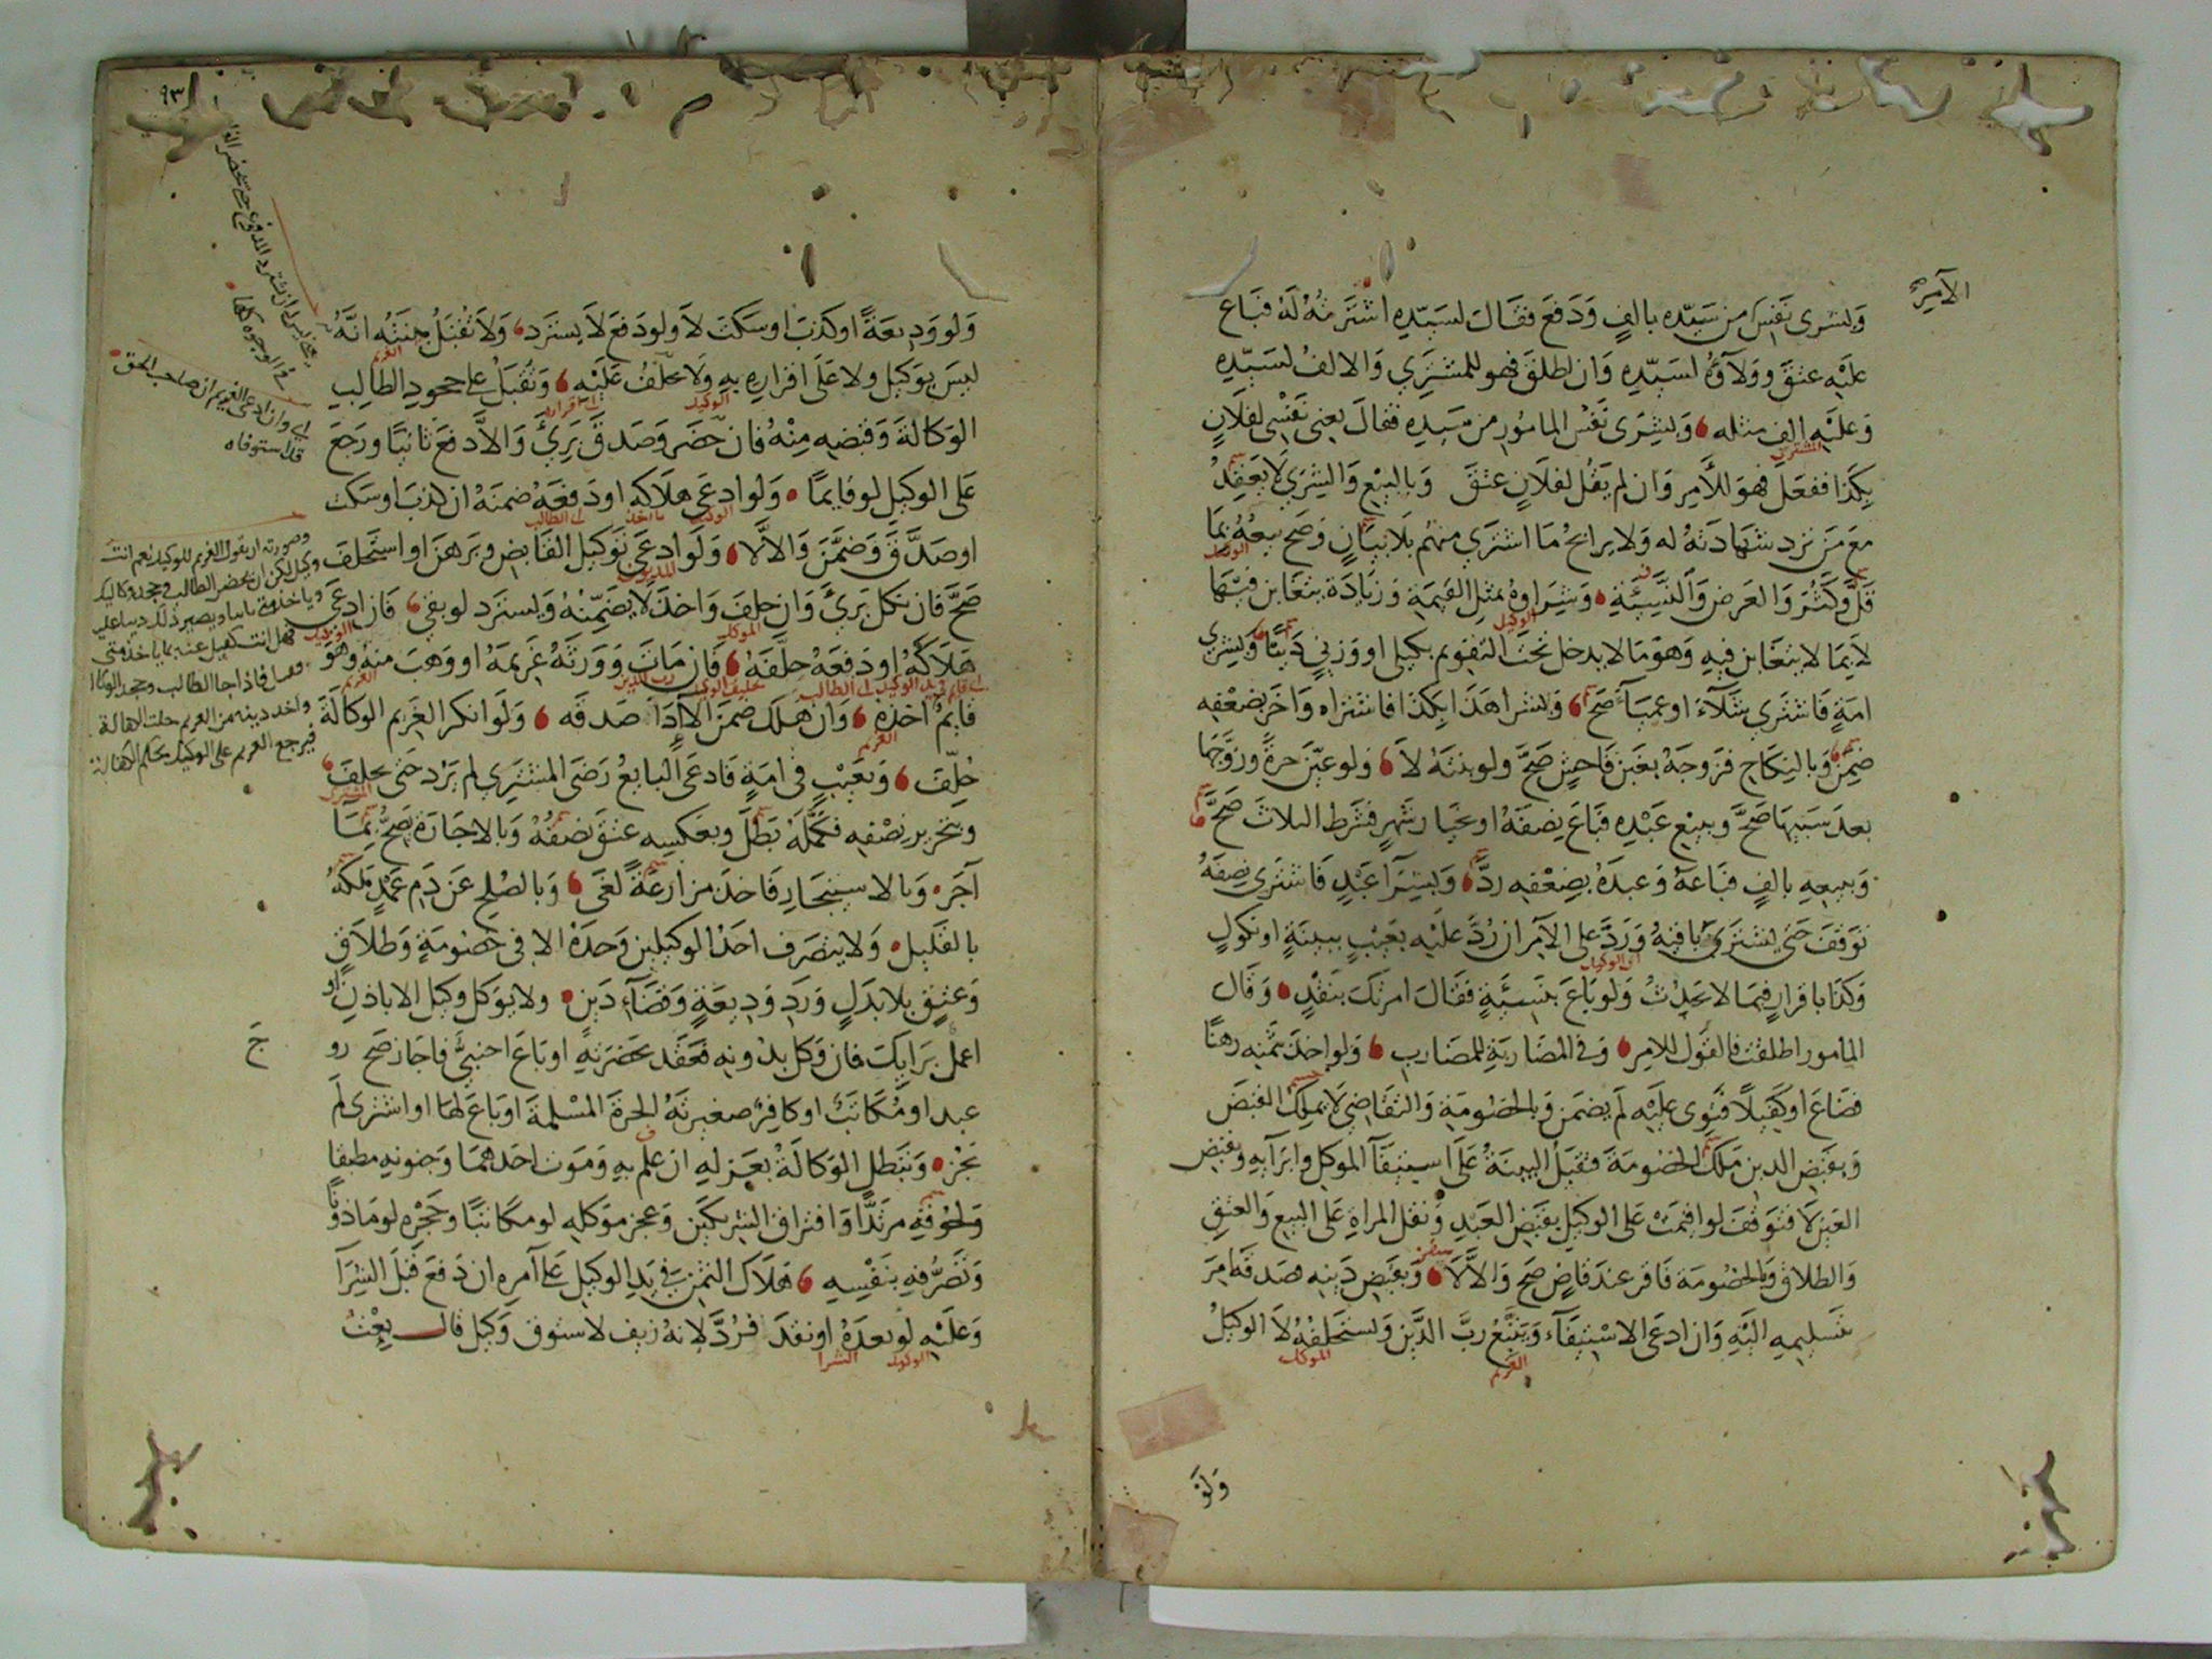 الآمر
وبشرى نفس من سيده بالف ودفع فقال لسيده اشتريته له فباع
عليه عتق وولاؤه لسيده وان اطلق فهو للمشتري والالف لسيده
وعليه الف مثله وبشرى نفس المامور من سيده فقال بعني نفسي لفلان
المشتري
بكذا ففعل فهو للآمر وان لم يقل لفلان عتق وبالبيع والشرى لا يعقد
مع من ترد شهادته له ولا يرابح ما اشترى منهم بلا بيان وصح بيعه بما
الوكيل
قل وكثر والعرض والنسيئة وشراوه بمثل القيمة وزيادة يتغابن فيها
الوكيل
لا بما لا يتغابن فيه وهو ما لا يدخل تحت التقويم بكيلي او وزني دينا وبشرى
امة فاشترى شلاء او عمياء صح وبشرا هذا بكذا فاشتراه واخر بضعفه
ضمن وبالنكاح فزوجه بغبن فاحش صح ولو بنته لا ولو عين حرة وزوجها
بعد سبيها صح وببيع عبده فباع نصفه او بخيار شهر فشرط الثلاث صح
وببيعه بالف فباعه وعبده بضعفه رد وبشرا عبد فاشترى نصفه
توقف حتى يشتري باقيه ورد على الآمر ان رد عليه بعيب ببينة او نكول
اي الوكيل
وكذا باقرار فيما لا يحدث ولو باع بنسيئة فقال امرتك بنقد وقال
المامور اطلقت فالقول للامر وفي المضاربة للمضارب ولو اخذ بثمنه رهنا
فضاع او كفيلا فتوى عليه لم يضمن وبالخصومة والتقاضي لا يملك القبض
وبقبض الدين ملك الخصومة فتقبل البينة على استيفاء الموكل وابرائه وبقبض
العين لا فتوقف لو اقيمت على الوكيل بقبض العبد ونقل المراة على البيع والعتق
والطلاق وبالخصومة فاقر عند قاض صح والا لا وبقبض دينه صدقه امر
بتسليمه اليه وان ادعى الاستيفاء ويتبع رب الدين ويستحلفه لا الوكيل
الغريم الموكل
ولو
٩٣
ولو وديعة او كذب او سكت لا ولو دفع لا يسترد ولا تقبل بينته انه
الغريم
ليس بوكيل ولا على اقراره به ولا يحلف عليه وتقبل على جحود الطالب
الوكيل اي اقراره
الوكالة وقبضه منه فان حضر وصدق بري والا دفع ثانيا ورجع
على الوكيل لو قايما ولو ادعى هلاكه او دفعه ضمنه ان كذب او سكت
الوكيل ما اخذ الى الطالب
او صدق وضمن والا لا ولو ادعى توكيل القابض وبرهن او استحلف
المديون
صح فان نكل بري وان حلف واخذ لا يضمنه ويسترد لو بقي فان ادعى
الموكل الوكيل
هلاكه او دفعه حلفه فان مات وورثه غريمه او وهب منه وهو
قايم اخذه وان هلك ضمن الا اذا صدقه ولو انكر الغريم الوكالة
الغريم
حلف وبعيب في امة فادعى البايع رضى المشتري لم يرد حتى يحلف
المشتري
وبتحرير نصفه فكمله بطل وبعكسه عتق نصفه وبالاجارة يصح بما
آجره وبالاستيجار فاخذ مزارعة لغى وبالصلح عن دم عمد يملكه
بالقليل ولا يتصرف احد الوكيلين وحده الا في خصومة وطلاق
وعتق بلا بدل ورد وديعة وقضاء دين ولا يوكل وكيل الا باذن او
اعمل برايك فان وكل بدونه فعقد بحضرته او باع اجنبي فاجاز صح زو
ج
عبد او مكاتب او كافر صغيرته الحرة المسلمة او باع لها او اشترى لم
يجز وتبطل الوكالة بعزله ان علم به وموت احدهما وجنونه مطبقا
ولحوقه مرتدا وافتراق الشريكين وعجز موكله لو مكاتبا وحجره لو ماذونا
وتصرفه بنفسه هلاك الثمن في يد الوكيل على آمره ان دفع قبل الشرا
وعليه لو بعده او نقد فرد لانه زيف لا ستوق وكيل قال بعت
الوكيل الشرا
اي وان ادعى الغريم ان صاحب الحق
قد استوفاه
وصورته ان يقول الغريم للوكيل نعم انت
وكيل لكن ان يحضر الطالب ويجحد وكالتك
فهل انت كفيل عنه بما ياخذ مني
فاذا جا الطالب وجحد الوكالة
واخذ دينه من الغريم حلت الكفالة
فيرجع الغريم على الوكيل بحكم الكفالة